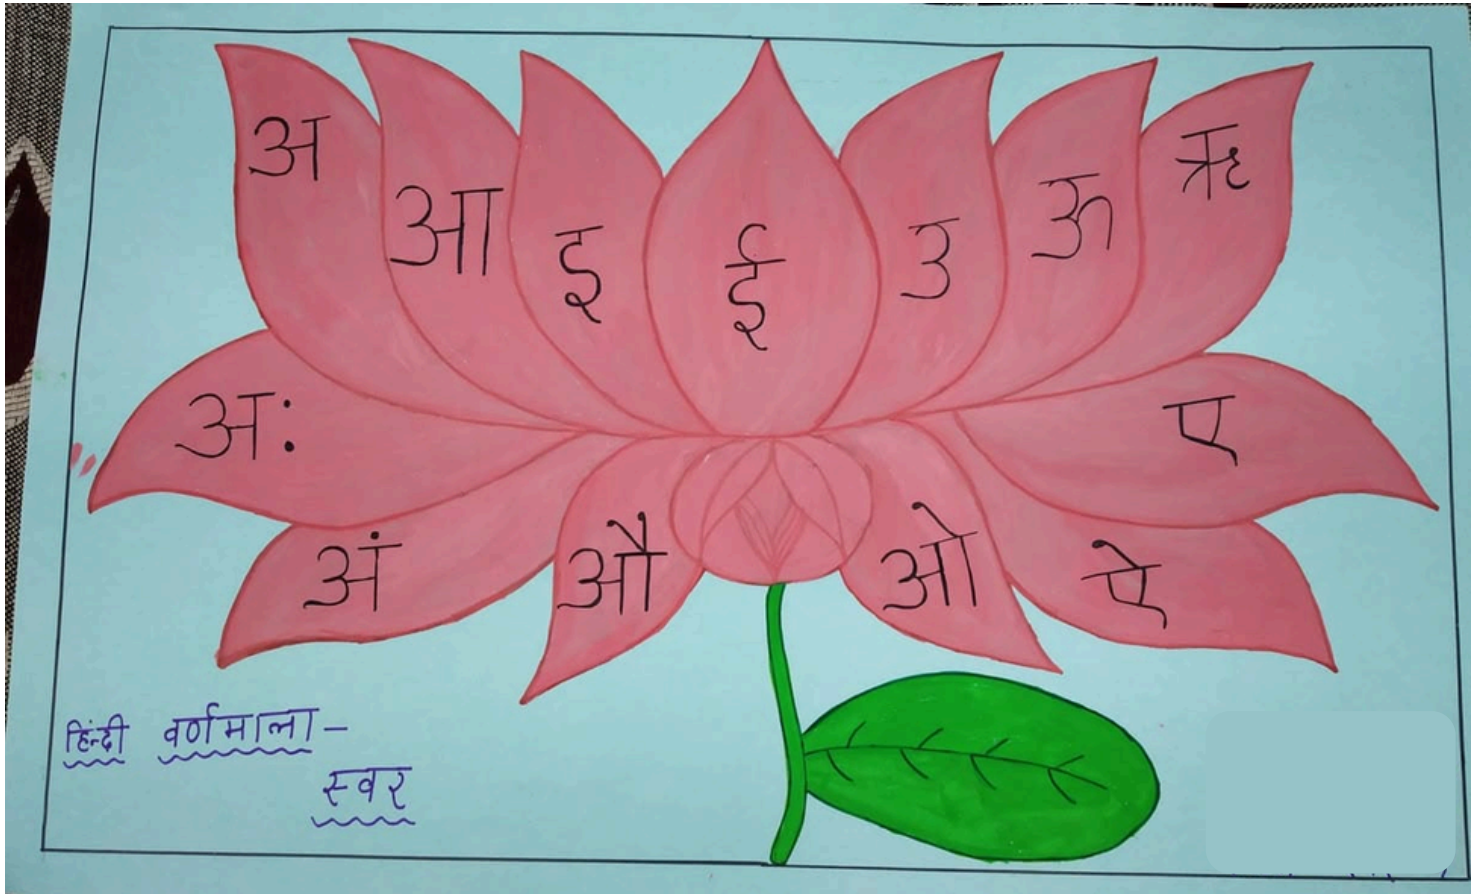 अ
आ
इ
ई
उ
ऊ
ऋ
ए
ऐ
ओ
औ
अं
अः
हिन्दी वर्णमाला-
स्वर